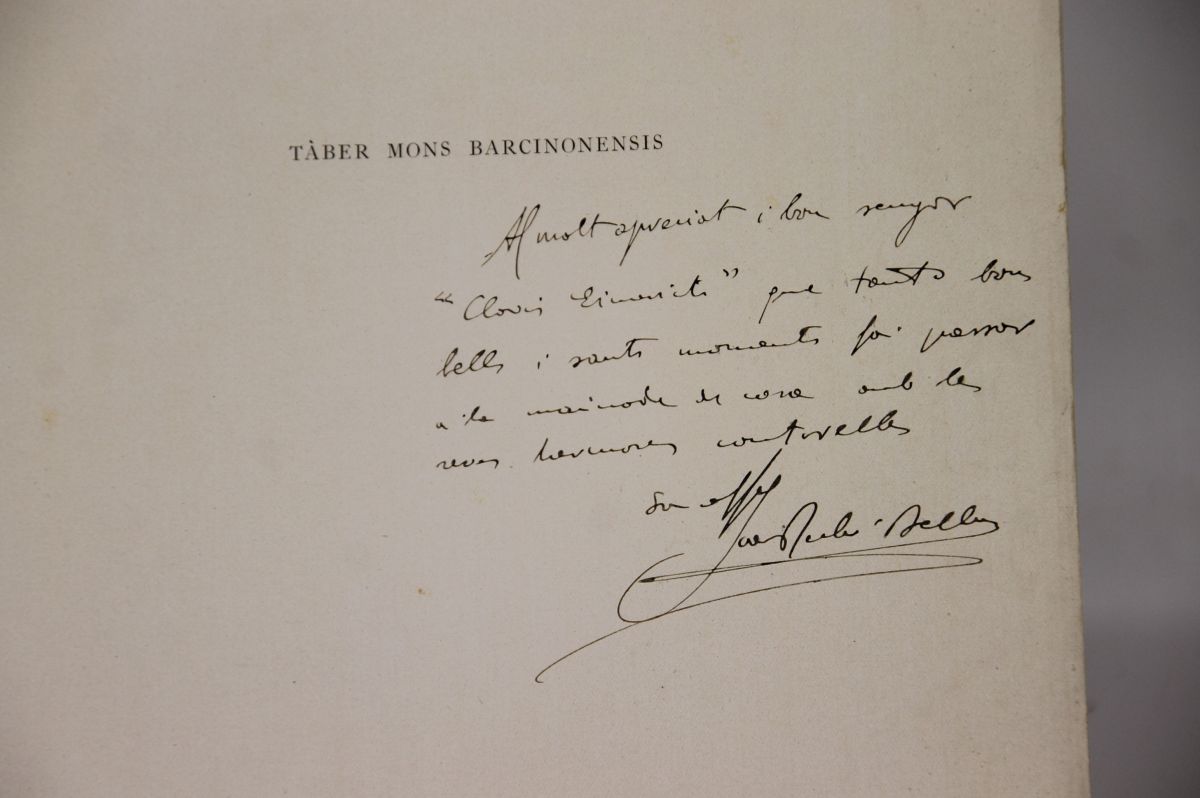 TÀBER MONS BARCINONENSIS
Al molt apreciat i bon senyor
"Clovis Eimerich" que tants bons
bells i sants moments fa passar
a la mainada de casa amb les
seves hermoses contarelles
Joan Rubió i Bellve